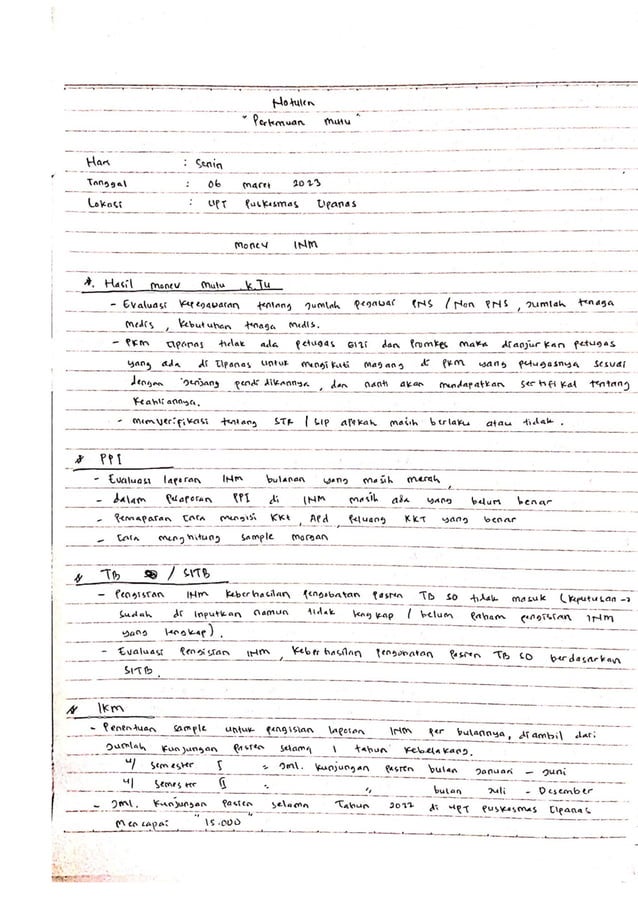 Notulen
"Pertemuan Mutu"
Hari : Senin
Tanggal : 06 Maret 2023
Lokasi : UPT Puskesmas Cipanas
Monev INM
*. Hasil monev mutu K.TU
- Evaluasi Kepegawaian tentang jumlah pegawai PNS / Non PNS, jumlah tenaga
medis, kebutuhan tenaga medis.
- PKM Cipanas tidak ada petugas Gizi dan Promkes maka dianjurkan petugas
yang ada di Cipanas untuk mengikuti magang di PKM yang petugasnya sesuai
dengan jenjang pendidikannya, dan nanti akan mendapatkan sertifikat tentang
keahliannya.
- memverifikasi tentang STR / SIP apakah masih berlaku atau tidak.
* PPI
- Evaluasi laporan INM bulanan yang masih merah,
- dalam pelaporan PPI di INM masih ada yang belum benar
- Pemaparan cara mengisi KKT, APd, peluang KKT yang benar
- cara menghitung sample morgan
* TB SO / SITB
- Pengisian INM keberhasilan pengobatan pasien TB SO tidak masuk (keputusan->
sudah di inputkan namun tidak lengkap / belum paham pengisian INM
yang lengkap).
- Evaluasi pengisian INM, keberhasilan pengobatan pasien TB SO berdasarkan
SITB.
* IKM
- Penentuan sample untuk pengisian laporan INM per bulannya, diambil dari
jumlah kunjungan pasien selama 1 tahun kebelakang.
u/ semester I = Jml. kunjungan pasien bulan Januari - Juni
u/ semester II = " bulan Juli - Desember
- Jml. kunjungan pasien selama Tahun 2022 di UPT Puskesmas Cipanas
mencapai "15.000"